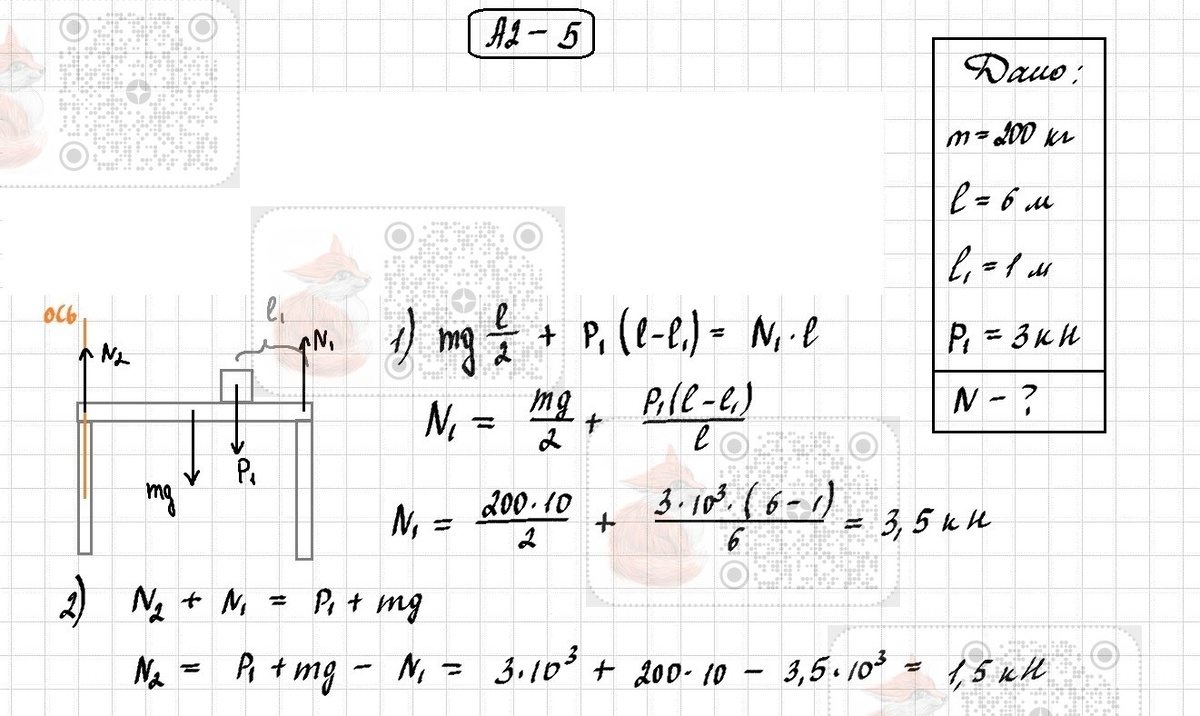 А2 - 5
Дано:
m = 200 кг
l = 6 м
l₁ = 1 м
P₁ = 3 кН
N - ?
ось
N₂
l₁
N₁
mg
P₁
1) mg l/2 + P₁ (l - l₁) = N₁ · l
N₁ = mg/2 + P₁(l - l₁)/l
N₁ = 200 · 10/2 + 3 · 10³ · (6 - 1)/6 = 3,5 кН
2) N₂ + N₁ = P₁ + mg
N₂ = P₁ + mg - N₁ = 3 · 10³ + 200 · 10 - 3,5 · 10³ = 1,5 кН